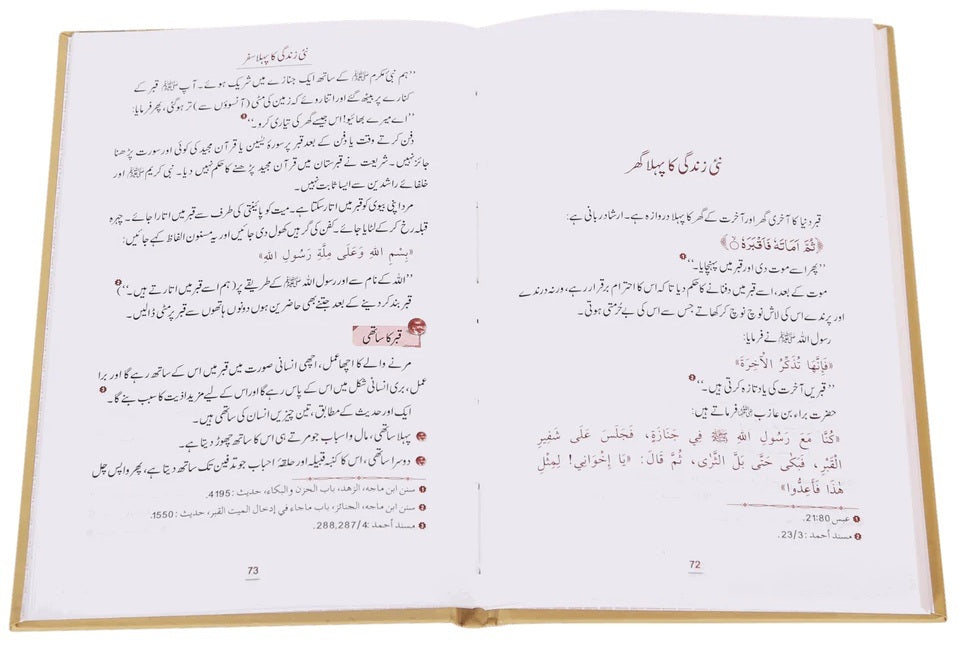 نئی زندگی کا پہلا گھر
قبر دنیا کا آخری گھر اور آخرت کے گھر کا پہلا دروازہ ہے۔ ارشاد ربانی ہے:
﴿ثُمَّ اَمَاتَهٗ فَاَقْبَرَهٗ ۙ﴾
’’پھر اسے موت دی اور قبر میں پہنچایا۔‘‘ ❶
موت کے بعد، اسے قبر میں دفنانے کا حکم دیا تاکہ اس کا احترام برقرار رہے، ورنہ درندے
اور پرندے اس کی لاش نوچ نوچ کر کھاتے جس سے اس کی بے حُرمتی ہوتی۔
رسول اللہ ﷺ نے فرمایا:
«فَإِنَّهَا تُذَكِّرُ الْآخِرَةَ»
’’قبریں آخرت کی یاد تازہ کرتی ہیں۔‘‘ ❷
حضرت براء بن عازب فرماتے ہیں:
«كُنَّا مَعَ رَسُولِ اللهِ ﷺ فِي جَنَازَةٍ، فَجَلَسَ عَلَى شَفِيرِ
الْقَبْرِ، فَبَكَى حَتَّى بَلَّ الثَّرَى، ثُمَّ قَالَ: «يَا إِخْوَانِي! لِمِثْلِ
هٰذَا فَأَعِدُّوا»
❶ عبس 21:80.
❷ مسند أحمد: 23/3.
72
نئی زندگی کا پہلا سفر
’’ہم نبیٔ مکرم ﷺ کے ساتھ ایک جنازے میں شریک ہوئے۔ آپ ﷺ قبر کے
کنارے پر بیٹھ گئے اور اتنا روئے کہ زمین کی مٹی (آنسوؤں سے) تر ہوگئی، پھر فرمایا:
’’اے میرے بھائیو! اس جیسے گھر کی تیاری کرو۔‘‘ ❶
دفن کرتے وقت یا دفن کے بعد قبر پر سورۂ یٰسین یا قرآن مجید کی کوئی اور سورت پڑھنا
جائز نہیں۔ شریعت نے قبرستان میں قرآن مجید پڑھنے کا حکم نہیں دیا۔ نبی کریم ﷺ اور
خلفائے راشدین سے ایسا ثابت نہیں۔
مرد اپنی بیوی کو قبر میں اتار سکتا ہے۔ میت کو پائینتی کی طرف سے قبر میں اتارا جائے۔ چہرہ
قبلہ رخ کر کے لٹایا جائے۔ کفن کی گرہیں کھول دی جائیں اور یہ مسنون الفاظ کہے جائیں:
«بِسْمِ اللهِ وَعَلَى مِلَّةِ رَسُولِ اللهِ»
’’اللہ کے نام سے اور رسول اللہ ﷺ کے طریقے پر (ہم اسے قبر میں اتارتے ہیں۔‘‘) ❷
قبر بند کر دینے کے بعد جتنے بھی حاضرین ہوں دونوں ہاتھوں سے قبر پر مٹی ڈالیں۔
قبر کا ساتھی
مرنے والے کا اچھا عمل، اچھی انسانی صورت میں قبر میں اس کے ساتھ رہے گا اور برا
عمل، بری انسانی شکل میں اس کے پاس رہے گا اور اس کے لیے مزید اذیت کا سبب بنے گا۔ ❸
ایک اور حدیث کے مطابق، تین چیزیں انسان کی ساتھی ہیں۔
پہلا ساتھی، مال و اسباب جو مرتے ہی اس کا ساتھ چھوڑ دیتا ہے۔
دوسرا ساتھی، اس کا کنبہ قبیلہ اور حلقۂ احباب جو تدفین تک ساتھ دیتا ہے، پھر واپس چل
❶ سنن ابن ماجه، الزهد، باب الحزن والبكاء، حديث: 4195.
❷ سنن ابن ماجه، الجنائز، باب ماجاء في إدخال الميت القبر، حديث: 1550.
❸ مسند أحمد: 288,287/4.
73